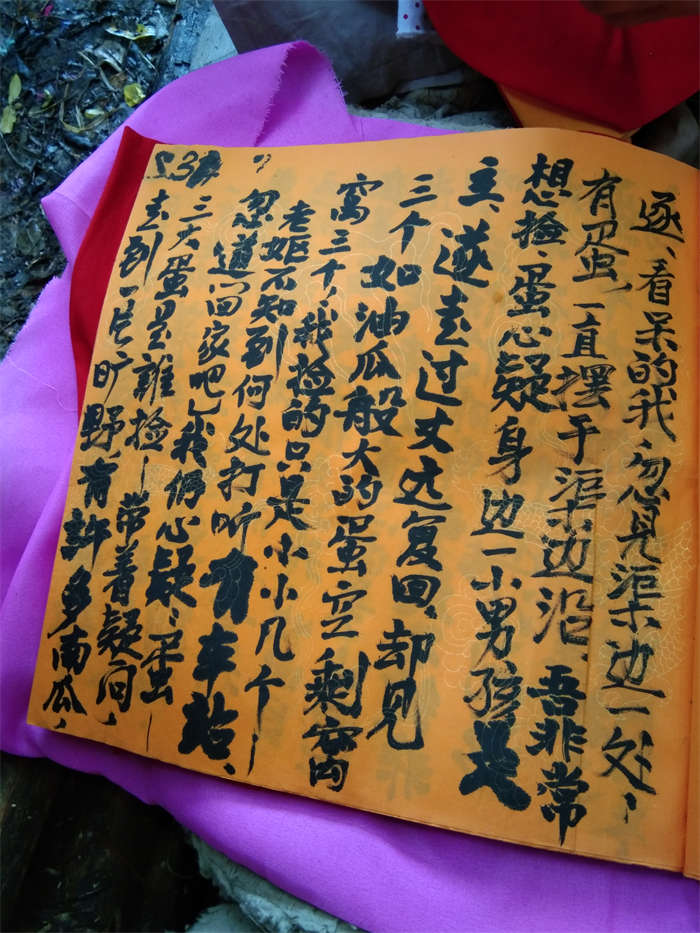 逐、看呆的我、忽见渠边一处、
有蛋、一直摆于渠边沿、吾非常
想捡、蛋心疑身边一小男孩是
主、遂去过丈远复回、却见
三个如油瓜般大的蛋空剩窝
窝三个、我捡的只是小小几个
老姬不知到何处打听有车站、
忽道回家吧、我们心疑、蛋
三大蛋是谁捡、带着疑问、
去到一片旷野、有許多南瓜、